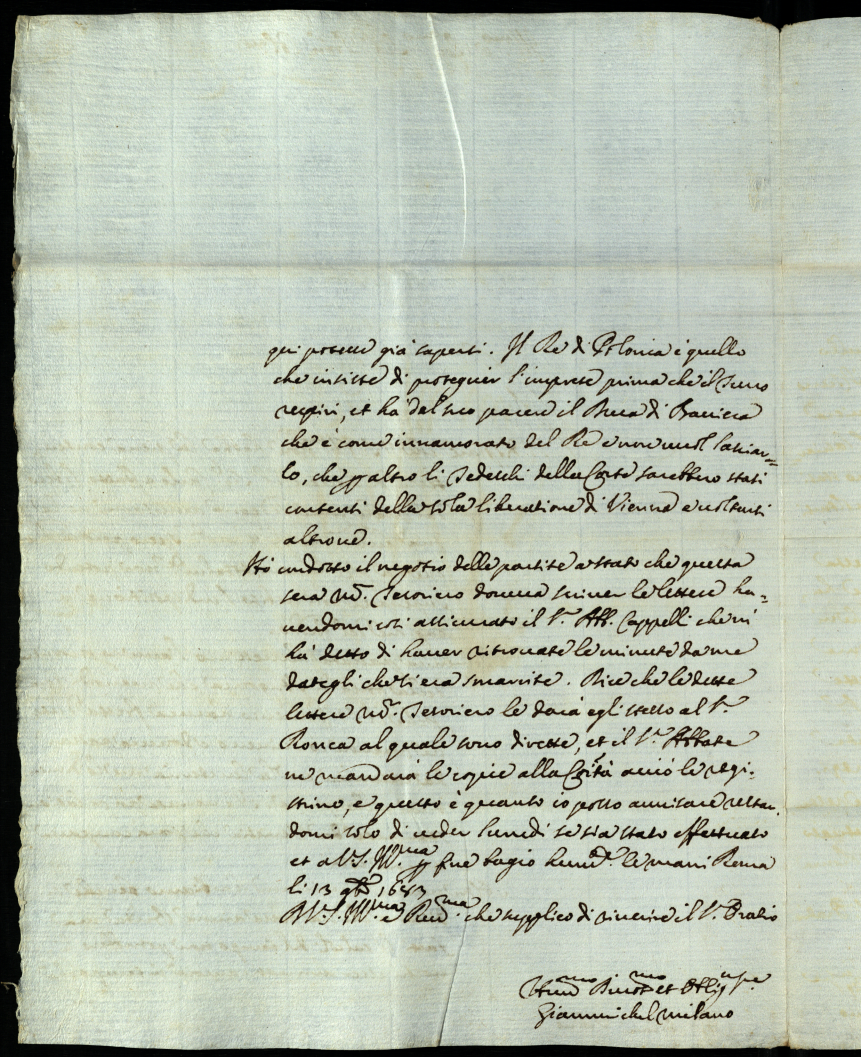 qui potette già saperli. Il Re di Polonia è quello
che insiste di proseguir l'imprese prima che il Turco
respiri, et ha dal suo parere il Duca di Baviera
che è come innamorato del Re e non vuol lasciar=
lo, che p altro li Tedeschi della Corte sarebbero stati
contenti della sola liberatione di Vienna e voltarsi
altrove.
Hò condotto il negotio delle partite a stato che questa
sera Mr. Tesoriero doverà scriver le lettere ha=
vendomi così assicurato il Sr. Abb. Cappelli che mi
hà detto di haver ritrovate le minute da me
dategli che si era smarrite. Dice che le dette
lettere Mr. Tesoriero le darà egli stesso al Sr.
Ronca al quale sono dirette, et il Sr. Abbate
ne mandarà le copie alla Città acciò le regi=
strino, e questo è quanto io posso avvisare restan=
domi solo di veder lunedì se sia stato effettuato
et a V.S. Ill.ma p fine bagio humte. le mani Roma
li 13 9bre 1683
D V.S. Ill.ma e Rev.ma che supplico di riverire il Sr. Oratio
Hum.mo Divot.mo et Oblig
Giammichel milano